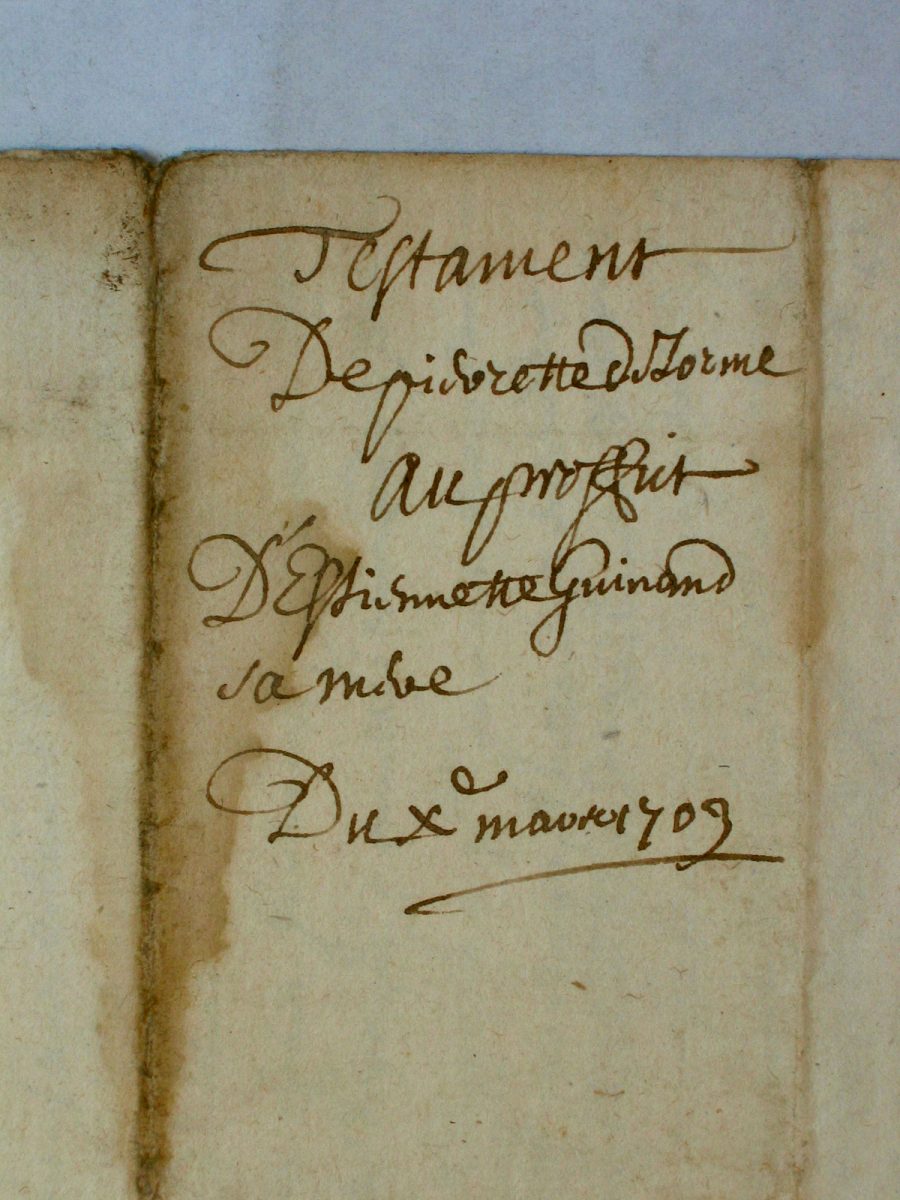 Testament
De pierrette delorme
Au proffict
D'Estiennette Guinand
sa mere
Du Xe mars 1709